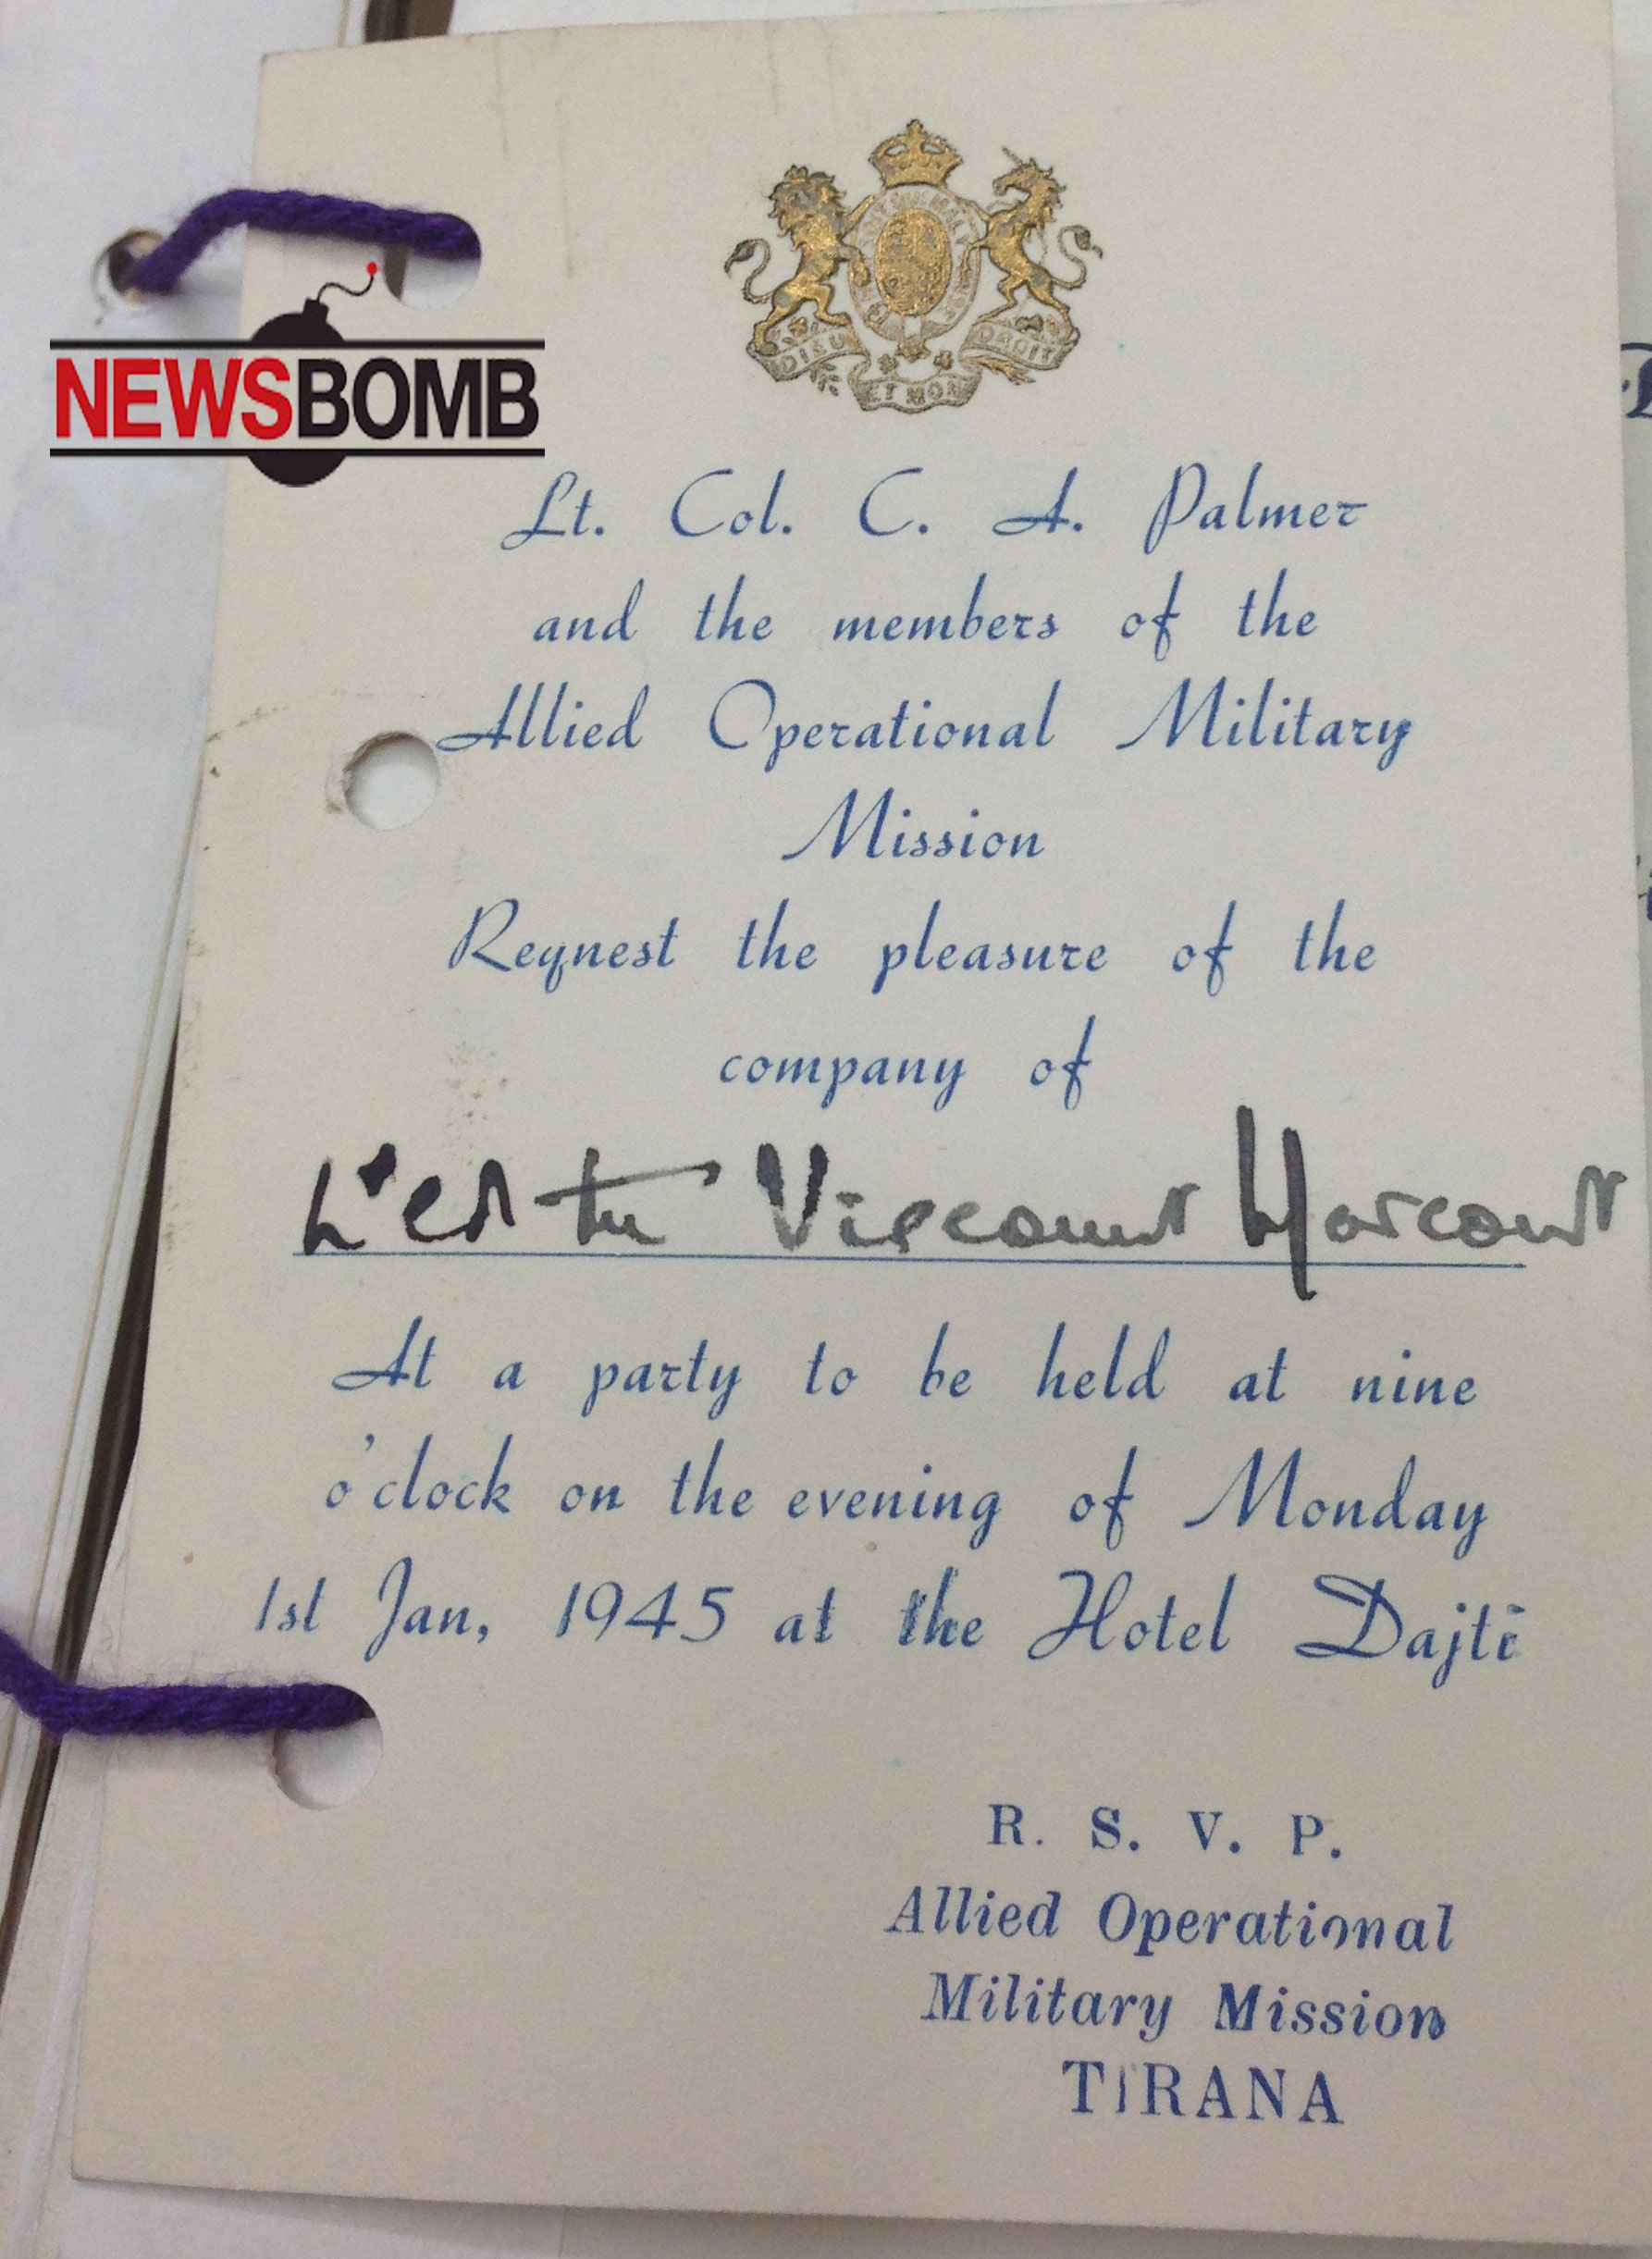 DIEU ET MON DROIT
NEWSBOMB
Lt. Col. C. A. Palmer
and the members of the
Allied Operational Military
Mission
Reqnest the pleasure of the
company of
Viscount Harcourt
At a party to be held at nine
o'clock on the evening of Monday
1st Jan, 1945 at the Hotel Dajti
R. S. V. P.
Allied Operational
Military Mission
TIRANA